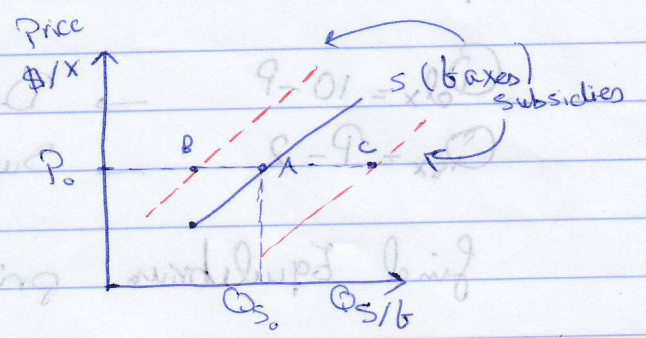 Price
$/X
S (taxes)
subsidies
B
A
C
P₀
Qs₀
Qs/t